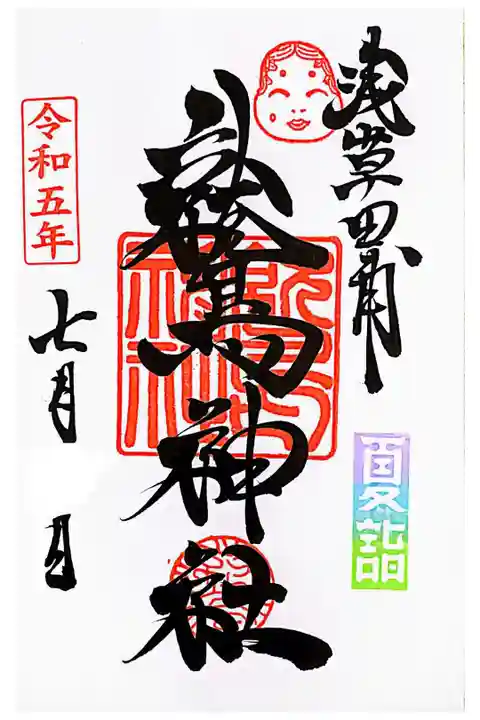 浅草田甫
夏詣
鷲神社
令和五年
七月 日